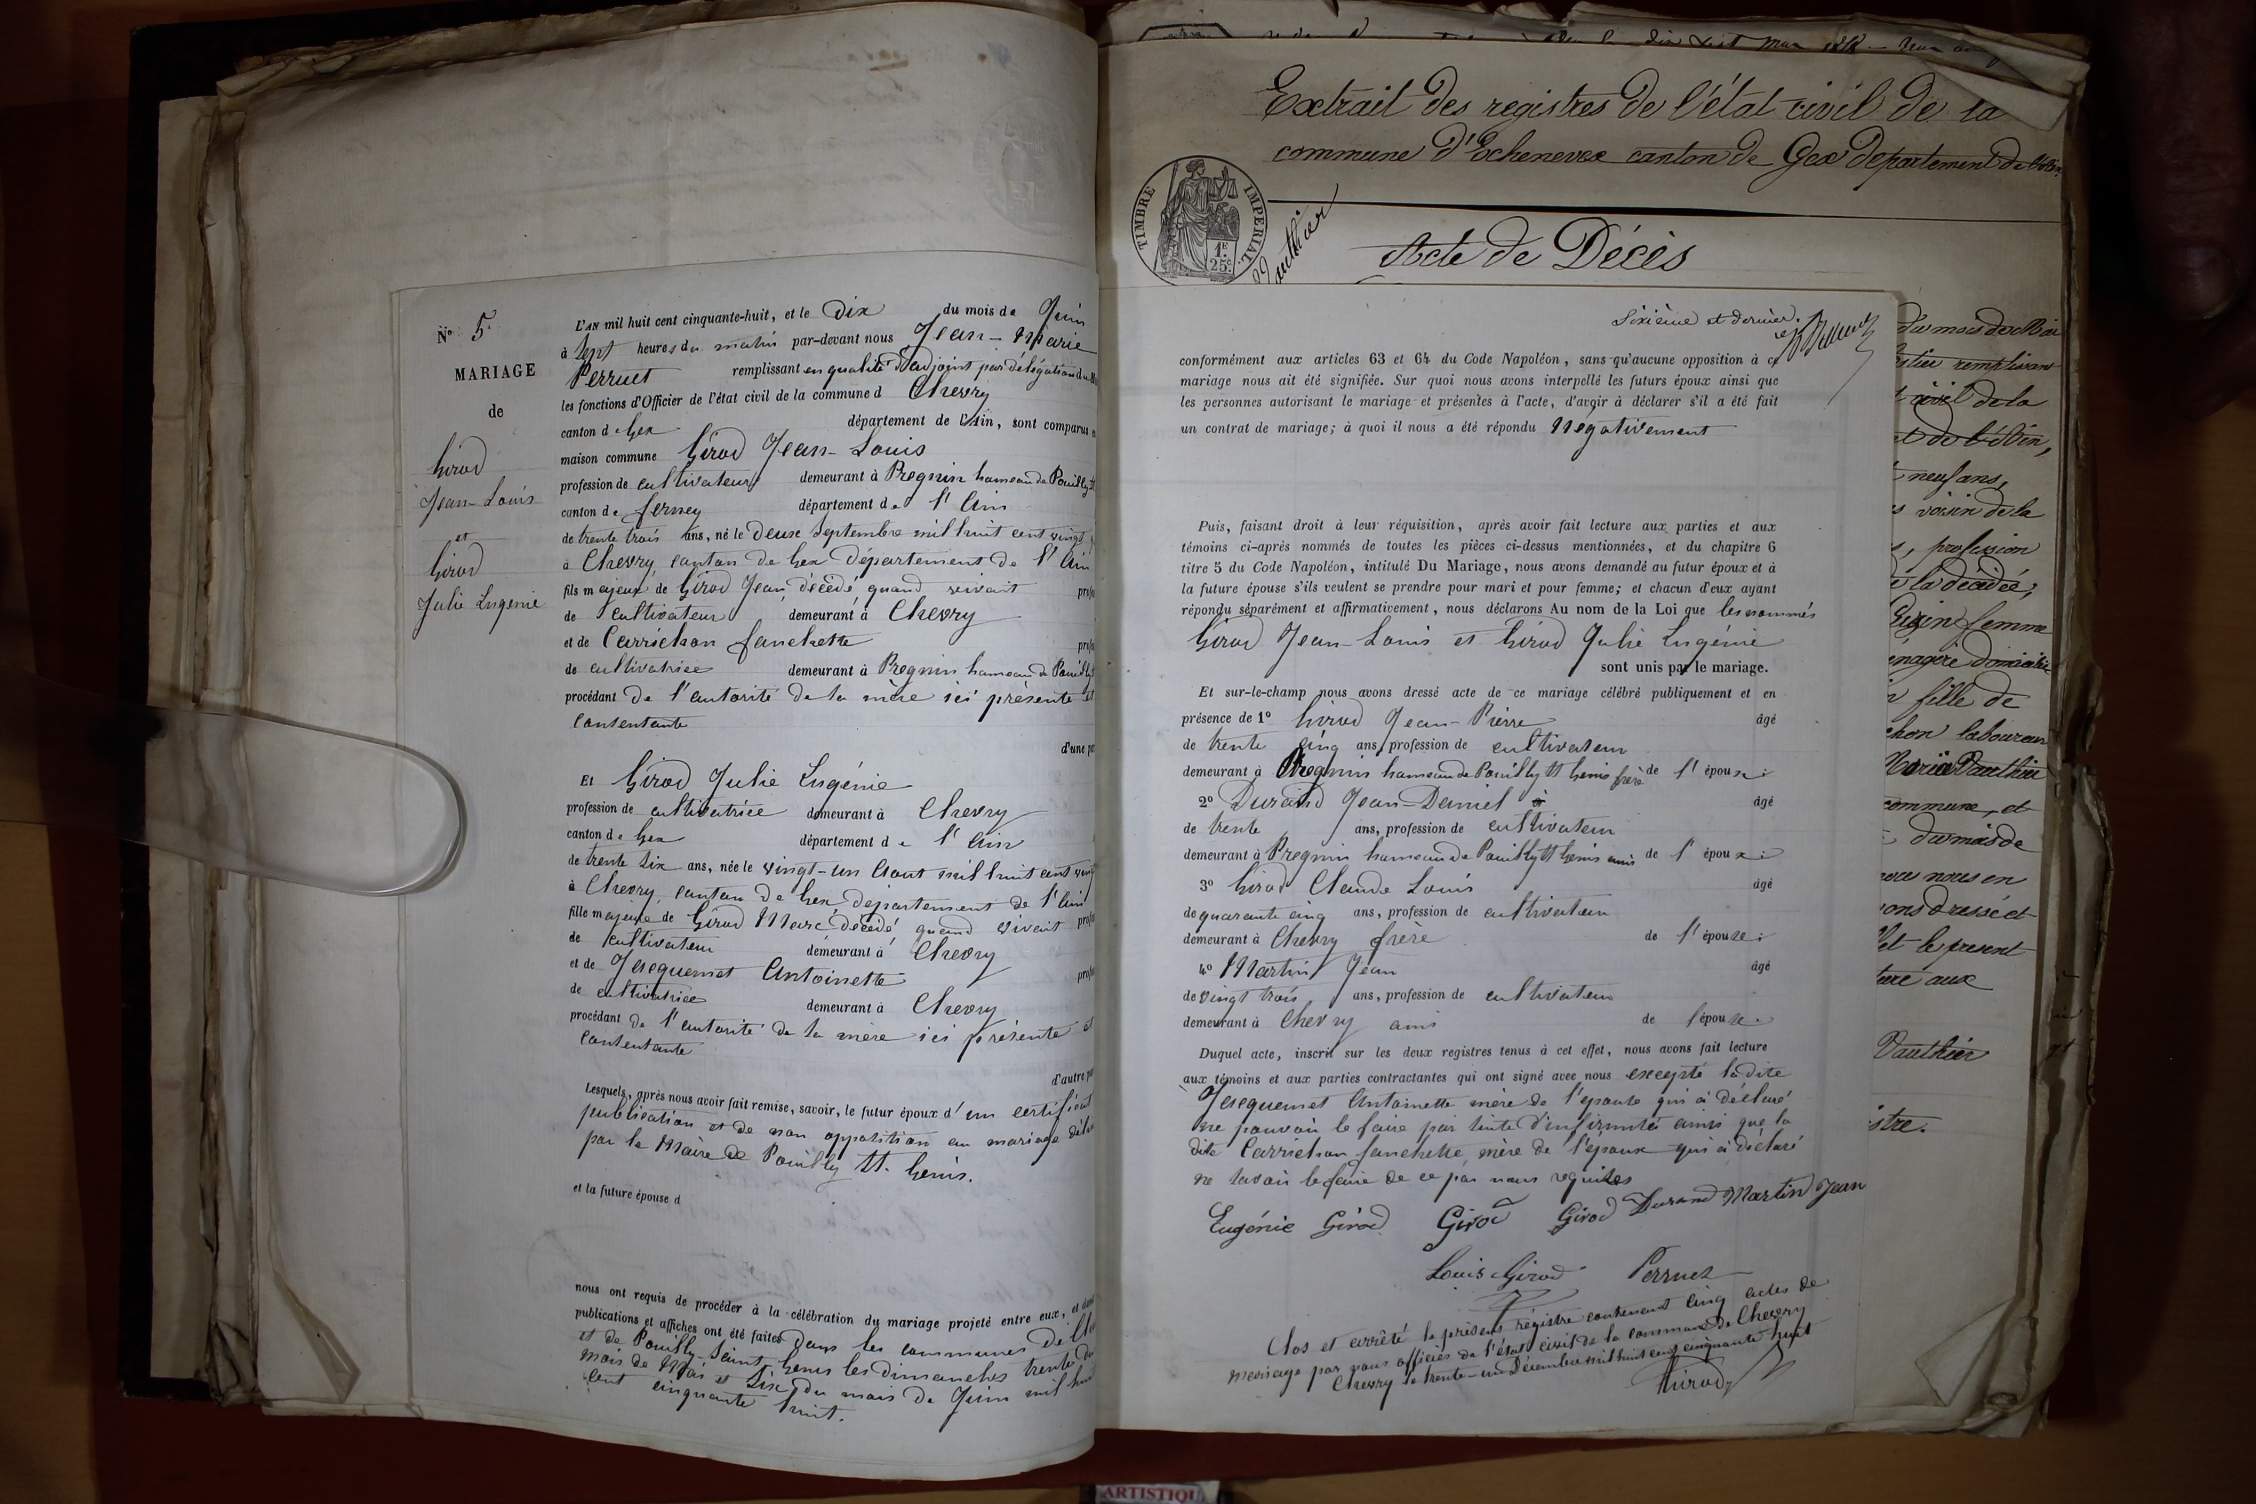 N° 5.
MARIAGE
de
Girod
Jean-Louis
et
Girod
Julie Eugénie
L'AN mil huit cent cinquante-huit, et le Dix du mois de Juin
à Sept heures du matin par-devant nous Jean-Marie
Perruet remplissant en qualité d'adjoint par délégation du
les fonctions d'Officier de l'état civil de la commune d Chevry
canton de Gex département de l'Ain, sont comparus
maison commune Girod Jean-Louis
profession de cultivateur demeurant à Pregnin hameau de Pouilly St
canton de ferney département de l'Ain
de trente trois ans, né le Deux Septembre mil huit cent vingt
à Chevry, canton de Gex département de l'Ain
fils majeur de Girod Jean, décédé quand vivait
de cultivateur demeurant à Chevry
et de Carrichon fanchette
de cultivatrice demeurant à Pregnin hameau de Pouilly
procédant de l'autorité de sa mère ici présente et
consentante
d'une
Et Girod Julie Eugénie
profession de cultivatrice demeurant à Chevry
canton de Gex département de l'Ain
de trente six ans, née le vingt-un Aout mil huit cent
à Chevry, canton de Gex, département de l'Ain
fille majeure de Girod Marc décédé quand vivait
de cultivateur demeurant à Chevry
et de Jacquemet Antoinette
de cultivatrice demeurant à Chevry
procédant de l'autorité de sa mère ici présente et
consentante
d'autre
Lesquels, après nous avoir fait remise, savoir, le futur époux d'un certificat
publication et de non opposition au mariage
par le Maire de Pouilly St. Genis.
et la future épouse d
nous ont requis de procéder à la célébration du mariage projeté entre eux,
publications et affiches ont été faites Dans les communes de
et de Pouilly-Saint-Genis les dimanches trente du
mois de Mai et Six du mois de Juin mil
cent cinquante huit.
Extrait des registres de l'état civil de la
commune d'Echenevex canton de Gex département de l'Ain
TIMBRE IMPERIAL
1F
25c
Vauthier
Acte de Décès
Sixième et dernier.
conformément aux articles 63 et 64 du Code Napoléon, sans qu'aucune opposition à ce
mariage nous ait été signifiée. Sur quoi nous avons interpellé les futurs époux ainsi que
les personnes autorisant le mariage et présentes à l'acte, d'avoir à déclarer s'il a été fait
un contrat de mariage; à quoi il nous a été répondu Négativement
Puis, faisant droit à leur réquisition, après avoir fait lecture aux parties et aux
témoins ci-après nommés de toutes les pièces ci-dessus mentionnées, et du chapitre 6
titre 5 du Code Napoléon, intitulé Du Mariage, nous avons demandé au futur époux et à
la future épouse s'ils veulent se prendre pour mari et pour femme; et chacun d'eux ayant
répondu séparément et affirmativement, nous déclarons Au nom de la Loi que les nommés
Girod Jean-Louis et Girod Julie Eugénie
sont unis par le mariage.
Et sur-le-champ nous avons dressé acte de ce mariage célébré publiquement et en
présence de 1° Girod Jean-Pierre âgé
de trente cinq ans, profession de cultivateur
demeurant à Pregnin hameau de Pouilly St Genis frère de l'époux;
2° Durand Jean-Daniel âgé
de trente ans, profession de cultivateur
demeurant à Pregnin hameau de Pouilly St Genis ami de l'époux;
3° Girod Claude Louis âgé
de quarante cinq ans, profession de cultivateur
demeurant à Chevry frère de l'épouse;
4° Martin Jean âgé
de vingt trois ans, profession de cultivateur
demeurant à Chevry ami de l'épouse.
Duquel acte, inscrit sur les deux registres tenus à cet effet, nous avons fait lecture
aux témoins et aux parties contractantes qui ont signé avec nous excepté ladite
Jacquemet Antoinette mère de l'épouse qui a déclaré
ne pouvoir le faire par suite d'infirmités ainsi que la
dite Carrichon fanchette mère de l'époux qui a déclaré
ne savoir le faire de ce par nous requises
Eugénie Girod Girod Girod Durand Martin Jean
Louis Girod Perruet
Clos et arrêté le présent régistre contenant cinq actes de
mariage par nous officier de l'état civil de la commune de Chevry
Chevry le trente-un Décembre mil huit cent cinquante huit
Girod
du mois de Mai
remplissant
civil de la
et de l'Ain,
neuf ans,
voisin de la
, profession
la décédée;
femme
fille de
laboureur
Vauthier
commune, et
du mois de
nous en
dressé et
et le présent
aux
Vauthier
ARTISTIQU